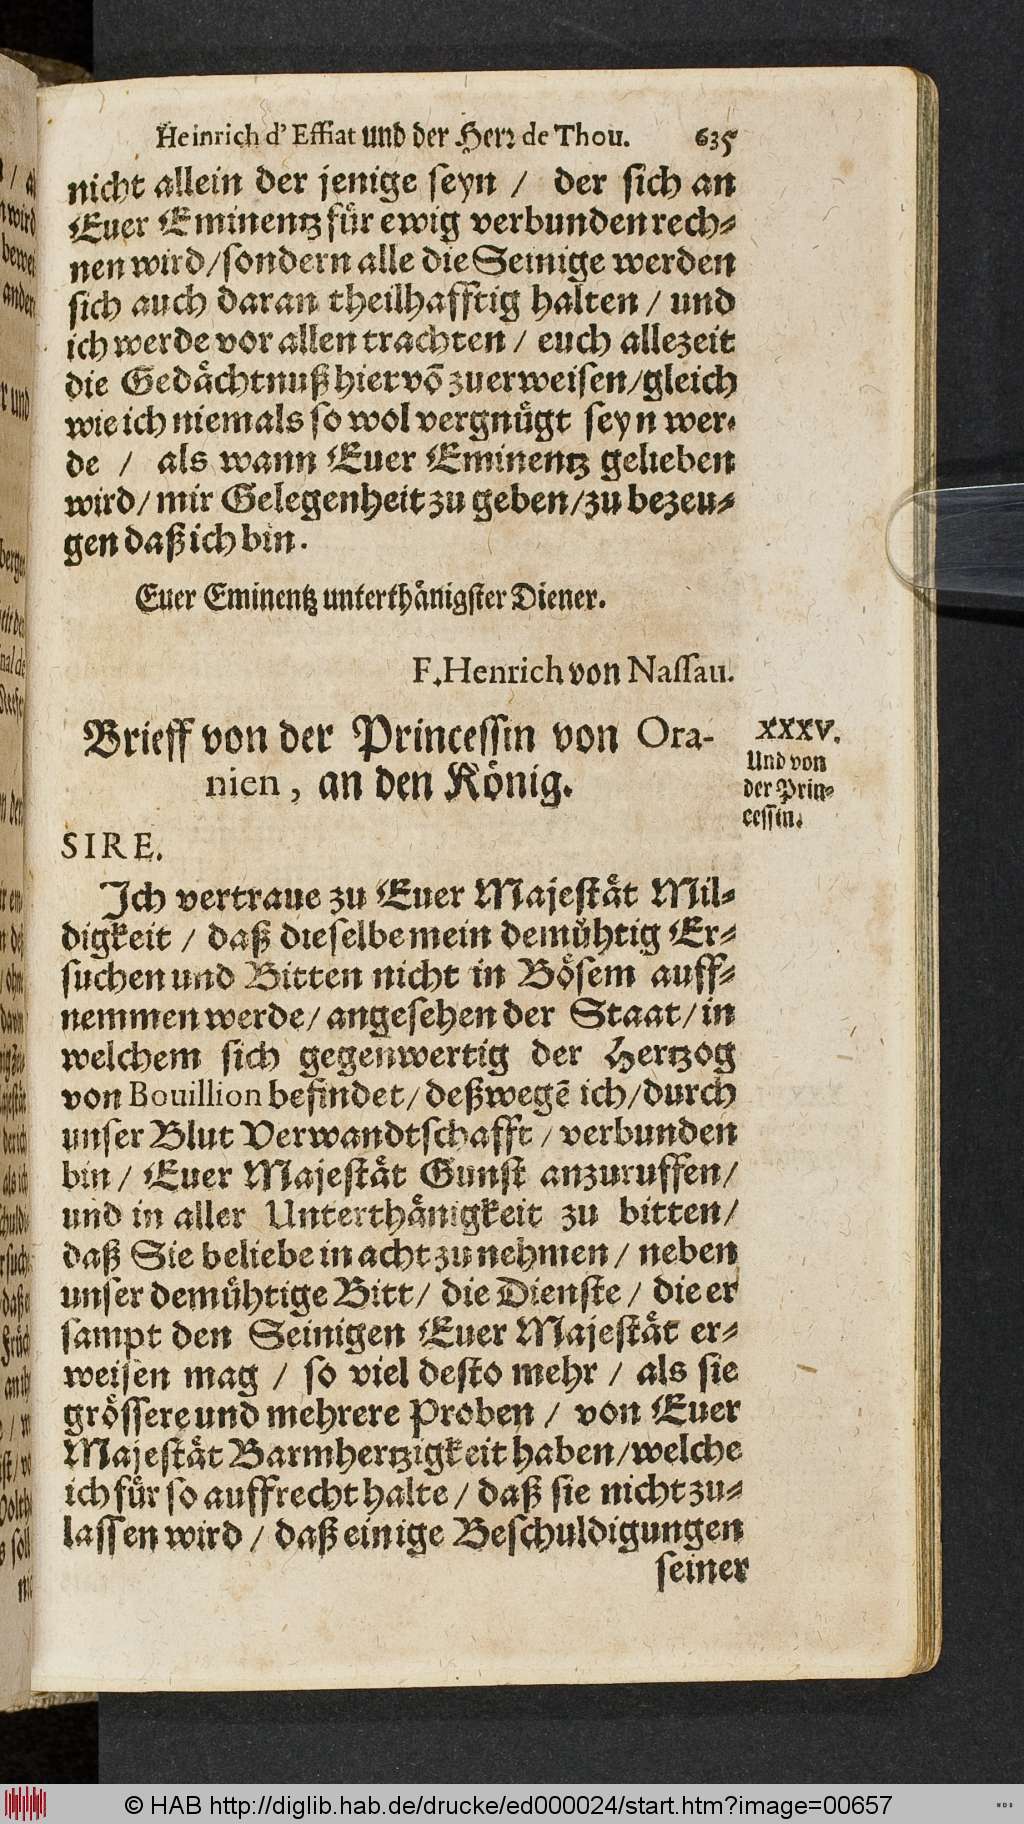 Heinrich d' Effiat und der Herꝛ de Thou. 635
nicht allein der jenige seyn / der sich an
Euer Eminentz für ewig verbunden rech-
nen wird/sondern alle die Seinige werden
sich auch daran theilhafftig halten / und
ich werde vor allen trachten / euch allezeit
die Gedächtnuß hiervõ zu erweisen/gleich
wie ich niemals so wol vergnügt seyn wer-
de / als wann Euer Eminentz gelieben
wird/mir Gelegenheit zu geben/zu bezeu-
gen daß ich bin.
Euer Eminentz unterthänigster Diener.
F. Henrich von Nassau.
Brieff von der Princessin von Ora-
nien, an den König.
XXXV.
Und von
der Prin-
cessin.
SIRE.
Ich vertraue zu Euer Majestät Mil-
digkeit / daß dieselbe mein demühtig Er-
suchen und Bitten nicht in Bösem auff-
nemmen werde/angesehen der Staat/in
welchem sich gegenwertig der Hertzog
von Bouillion befindet/deßwegẽ ich/durch
unser Blut Verwandtschafft/verbunden
bin / Euer Majestät Gunst anzuruffen/
und in aller Unterthänigkeit zu bitten/
daß Sie beliebe in acht zu nehmen / neben
unser demühtige Bitt/ die Dienste / die er
sampt den Seinigen Euer Majestät er-
weisen mag / so viel desto mehr / als sie
grössere und mehrere Proben / von Euer
Majestät Barmhertzigkeit haben/welche
ich für so auffrecht halte / daß sie nicht zu-
lassen wird / daß einige Beschuldigungen
seiner
© HAB http://diglib.hab.de/drucke/ed000024/start.htm?image=00657